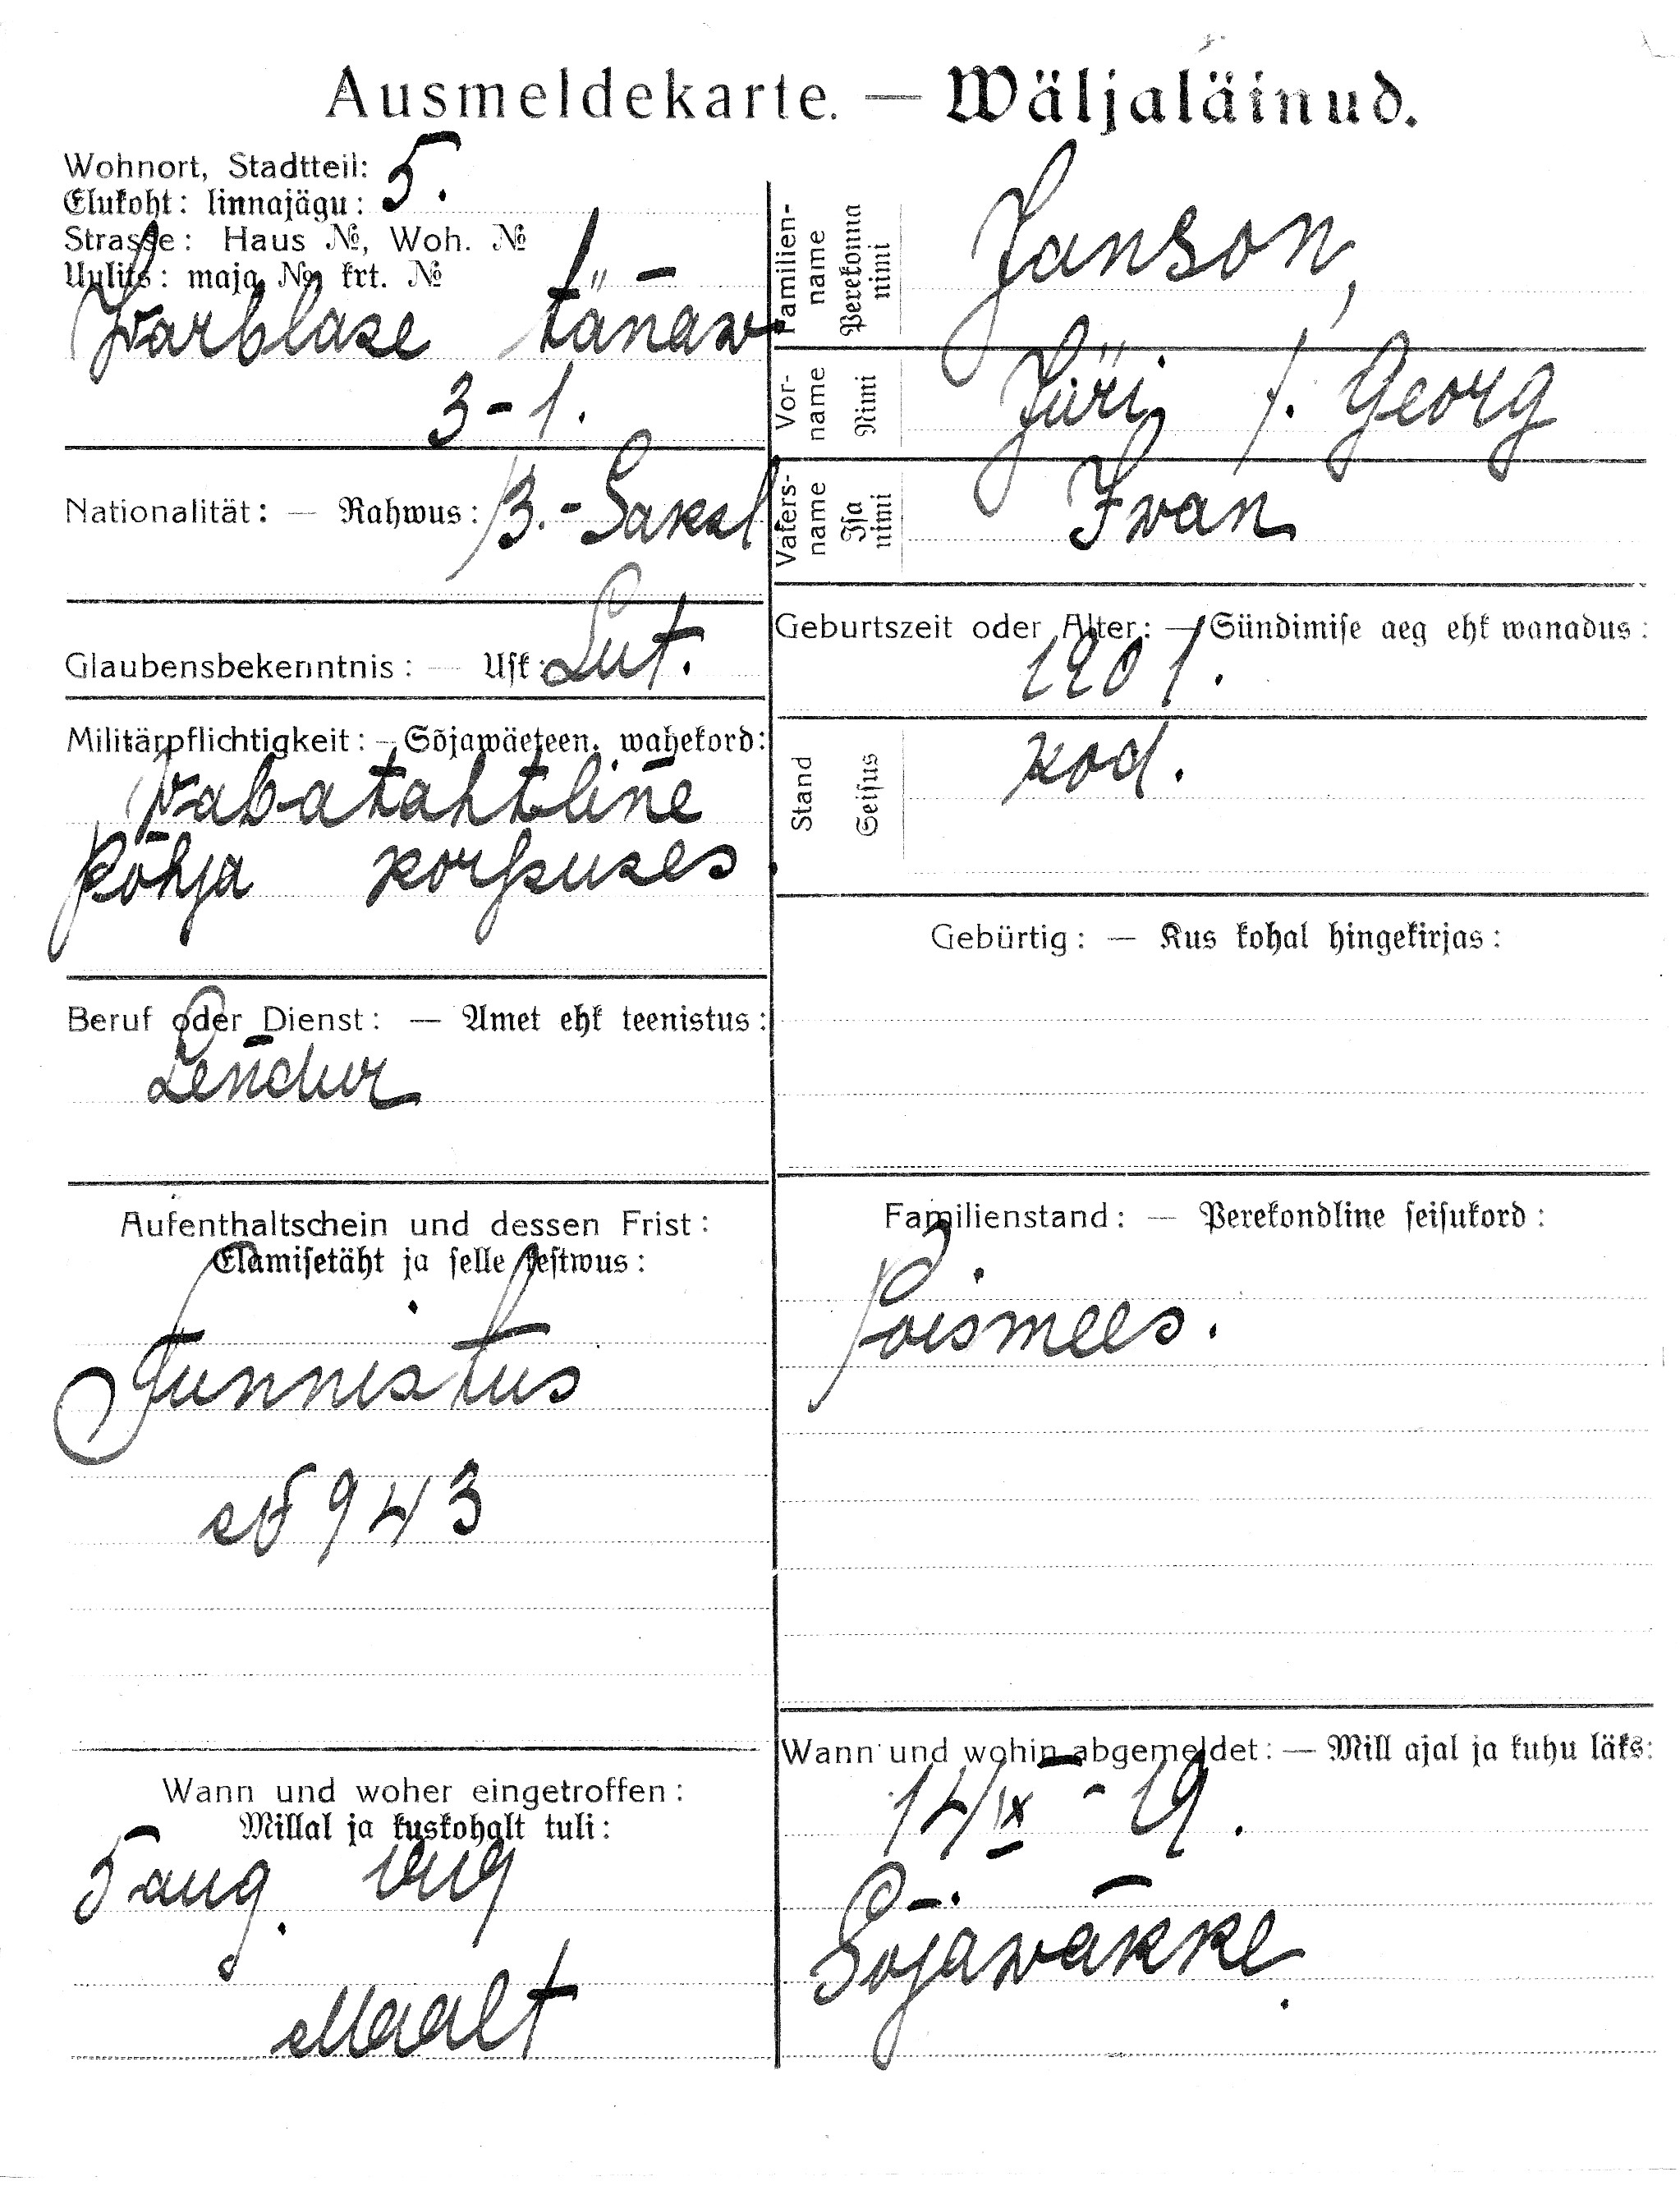 Ausmeldekarte. — Wäljaläinud.
Wohnort, Stadtteil:
Elukoht: linnajägu: 5.
Strasse: Haus №, Woh. №
Uulits: maja № krt. №
Warblase tänaw
3-1.
Nationalität: — Rahwus: B.-Saksl
Glaubensbekenntnis: — Usk: Lut.
Militärpflichtigkeit: — Sõjawäeteen. wahekord:
Wabatahtline
Põhja korpuses.
Beruf oder Dienst: — Amet ehk teenistus:
Lendur
Aufenthaltschein und dessen Frist:
Elamisetäht ja selle kestwus:
Tunnistus
№ 943
Wann und woher eingetroffen:
Millal ja kuskohalt tuli:
5 aug. 1919
Maalt
Familien-name
Perekonna nimi
Janson,
Vor-name
Nimi
Jüri, /. Georg
Vaters-name
Isa nimi
Iwan
Geburtszeit oder Alter: — Sündimise aeg ehk wanadus:
1901.
Stand
Seisus
kod.
Gebürtig: — Kus kohal hingekirjas:
Familienstand: — Perekondline seisukord:
Poismees.
Wann und wohin abgemeldet: — Mill ajal ja kuhu läks:
14/IX - 19.
Sõjawäkke.